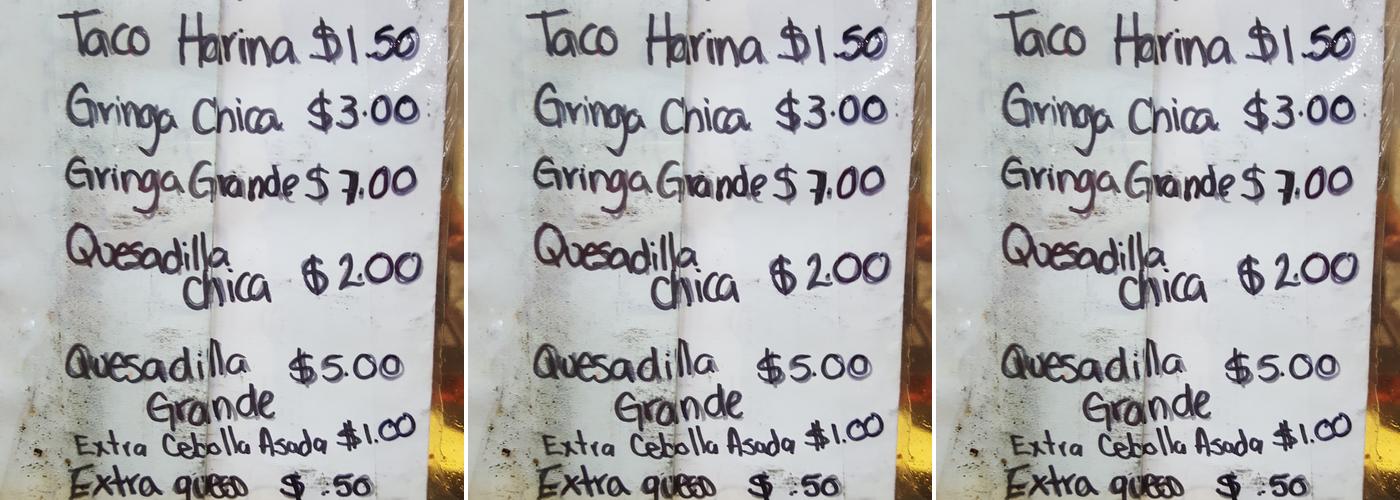 Taco Harina $1.50 Taco Harina $1.50 Taco Harina $1.50
Gringa Chica $3.00 Gringa Chica $3.00 Gringa Chica $3.00
Gringa Grande $7.00 Gringa Grande $7.00 Gringa Grande $7.00
Quesadilla Quesadilla Quesadilla
chica $2.00 chica $2.00 chica $2.00
Quesadilla $5.00 Quesadilla $5.00 Quesadilla $5.00
Grande Grande Grande
Extra Cebolla Asada $1.00 Extra Cebolla Asada $1.00 Extra Cebolla Asada $1.00
Extra queso $.50 Extra queso $.50 Extra queso $.50